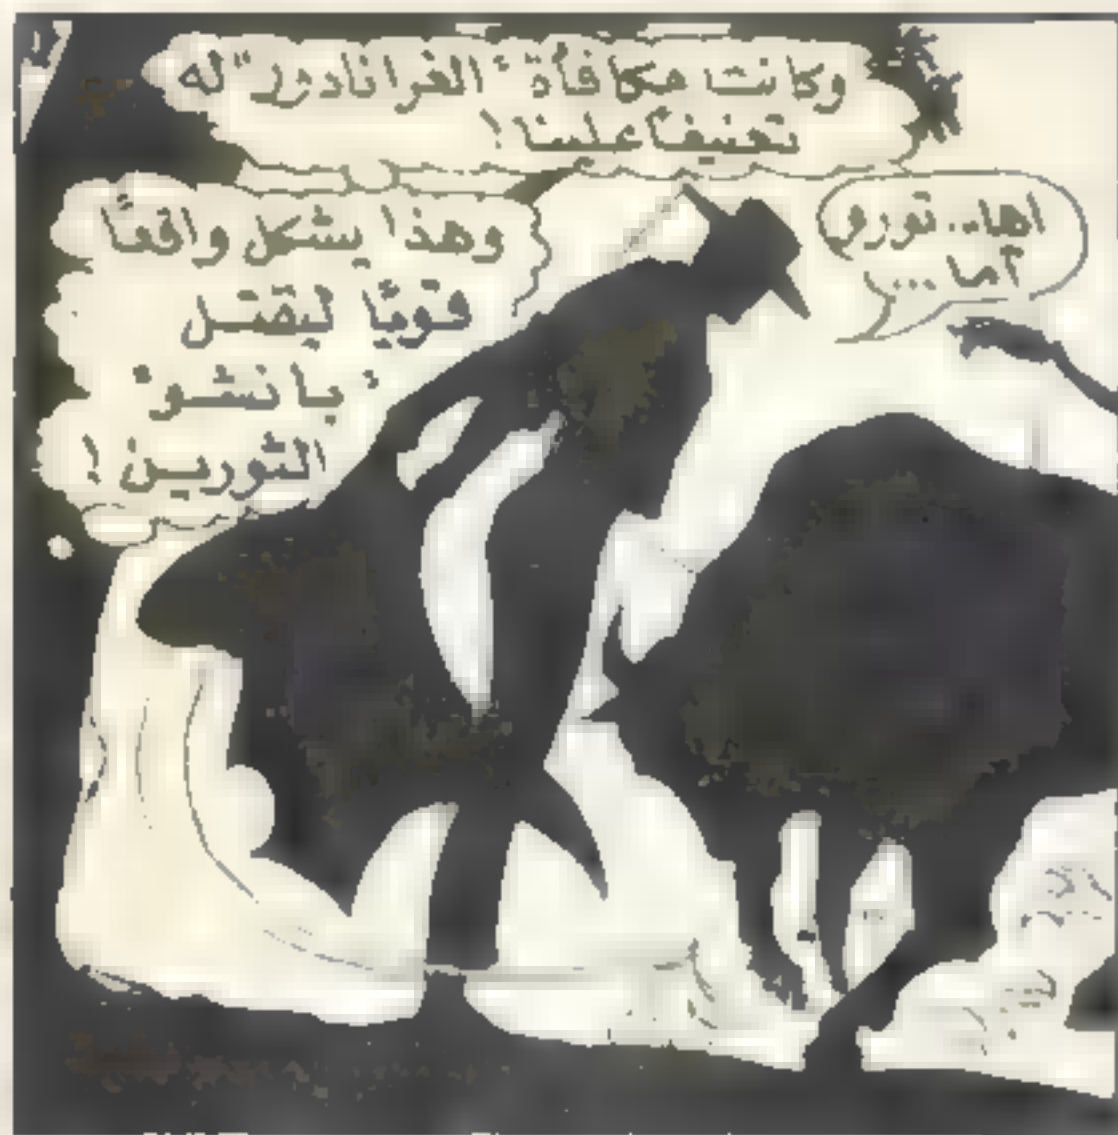 وكانت مكافأة "الغرانادور" له
تعنيفاً علينا!
وهذا يشكل واقعًا
قويًا ليقتل
"بانشو"
الثورين!
اهاء.. تورو
آما ...